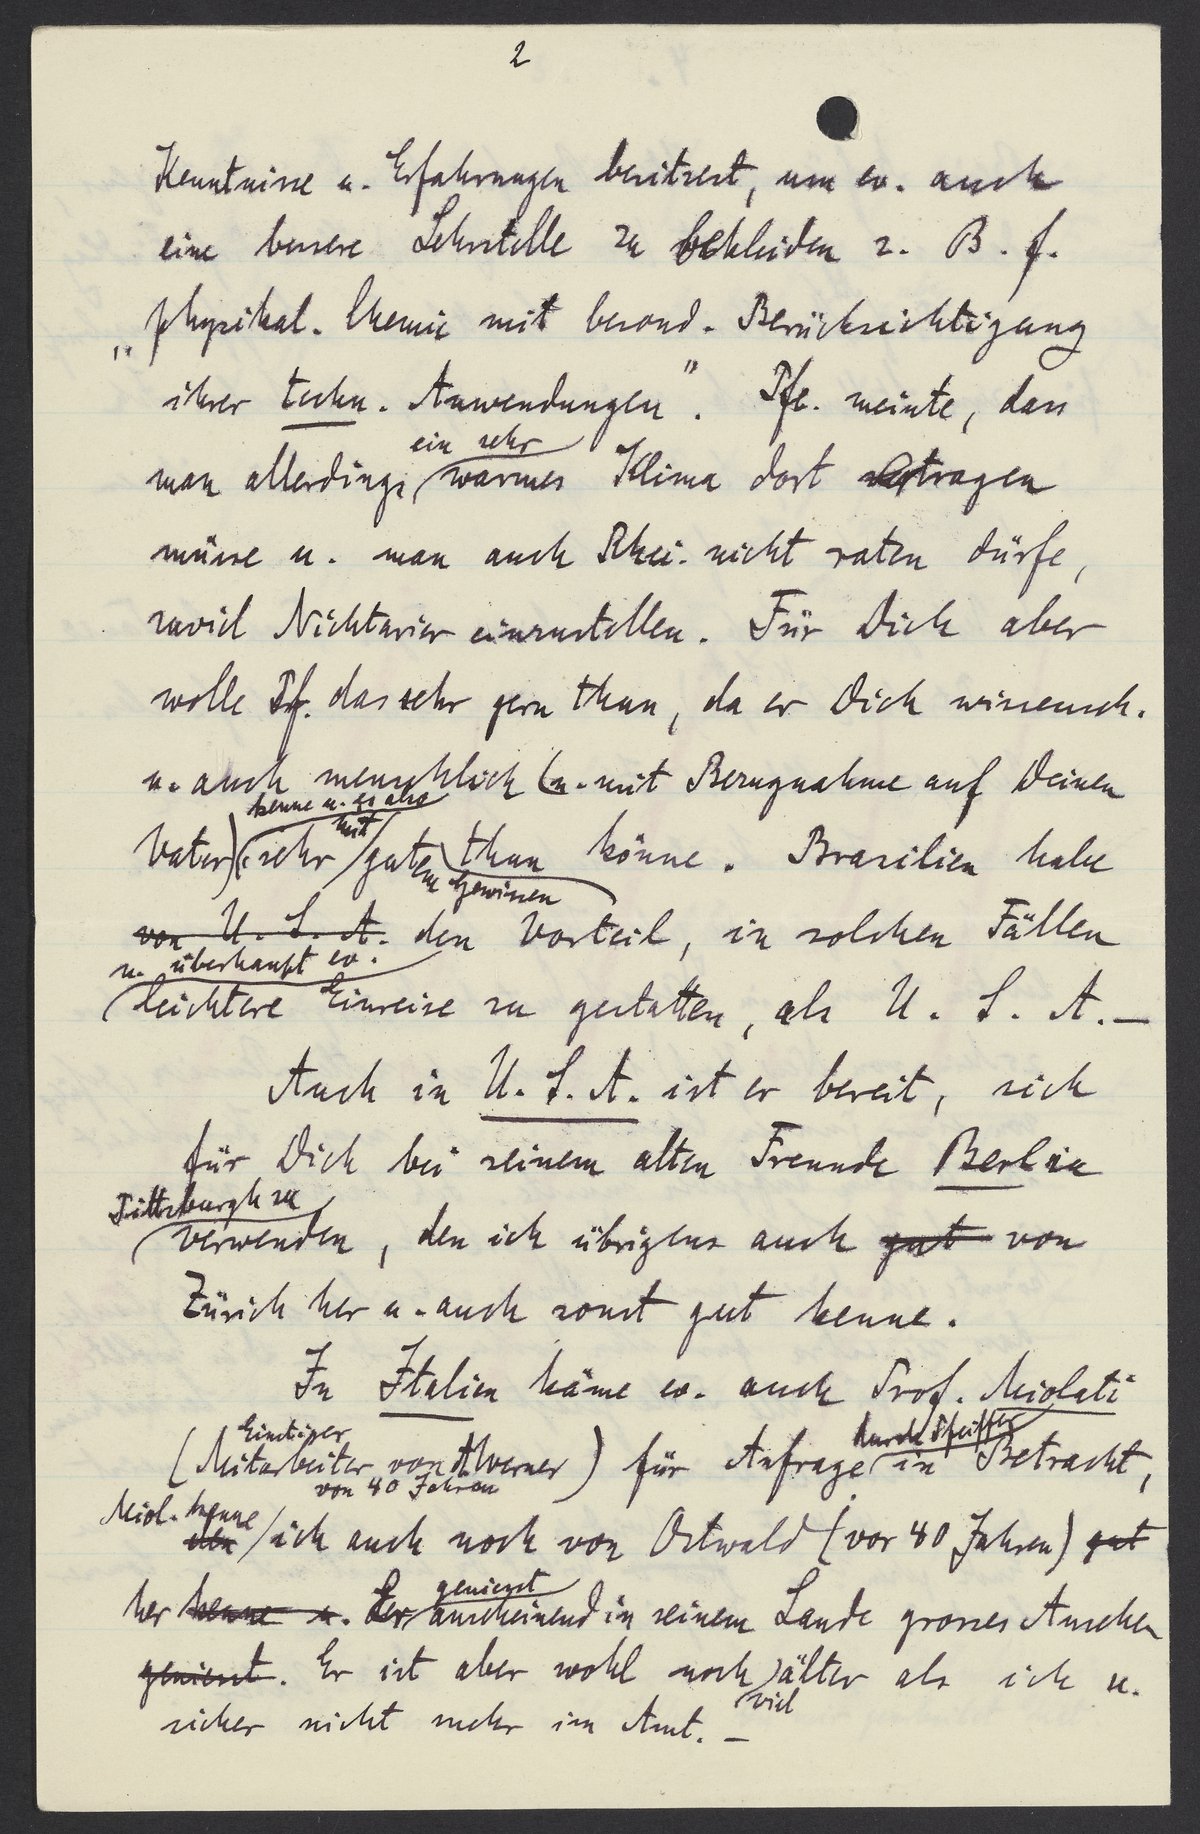 2
Kenntnisse u. Erfahrungen besitzest, um ev. auch
eine bessere Lehrstelle zu bekleiden z. B. f.
„physikal. Chemie mit besond. Berücksichtigung
ihrer techn. Anwendungen". Pfe. meinte, dass
ein sehr
man allerdings warmes Klima dort ertragen
müsse u. man auch Rhei. nicht raten dürfe,
zuviel Nichtarier einzustellen. Für Dich aber
wolle Pf. das sehr gern thun, da er Dich wissensch.
u. auch menschlich (u. mit Bezugnahme auf Deinen
kenne u. es also
mit
Vater) sehr gutem thun könne. Brasilien habe
Gewissen
von U. S. A. den Vorteil, in solchen Fällen
u. überhaupt ev.
leichtere Einreise zu gestatten, als U. S. A. —
Auch in U. S. A. ist er bereit, sich
für Dich bei seinem alten Freunde Berl in
Pittsburgh zu
verwenden, den ich übrigens auch gut von
Zürich her u. auch sonst gut kenne.
In Italien käme ev. auch Prof. Miolati
Einstiger durch Pfeiffer
(Mitarbeiter von A Werner) für Anfrage in Betracht,
von 40 Jahren
Miol. kenne
den ich auch noch von Ostwald (vor 40 Jahren) gut
geniesst
her kenne u. der anscheinend in seinem Lande grosses Ansehen
geniesst. Er ist aber wohl noch älter als ich u.
viel
sicher nicht mehr im Amt. —